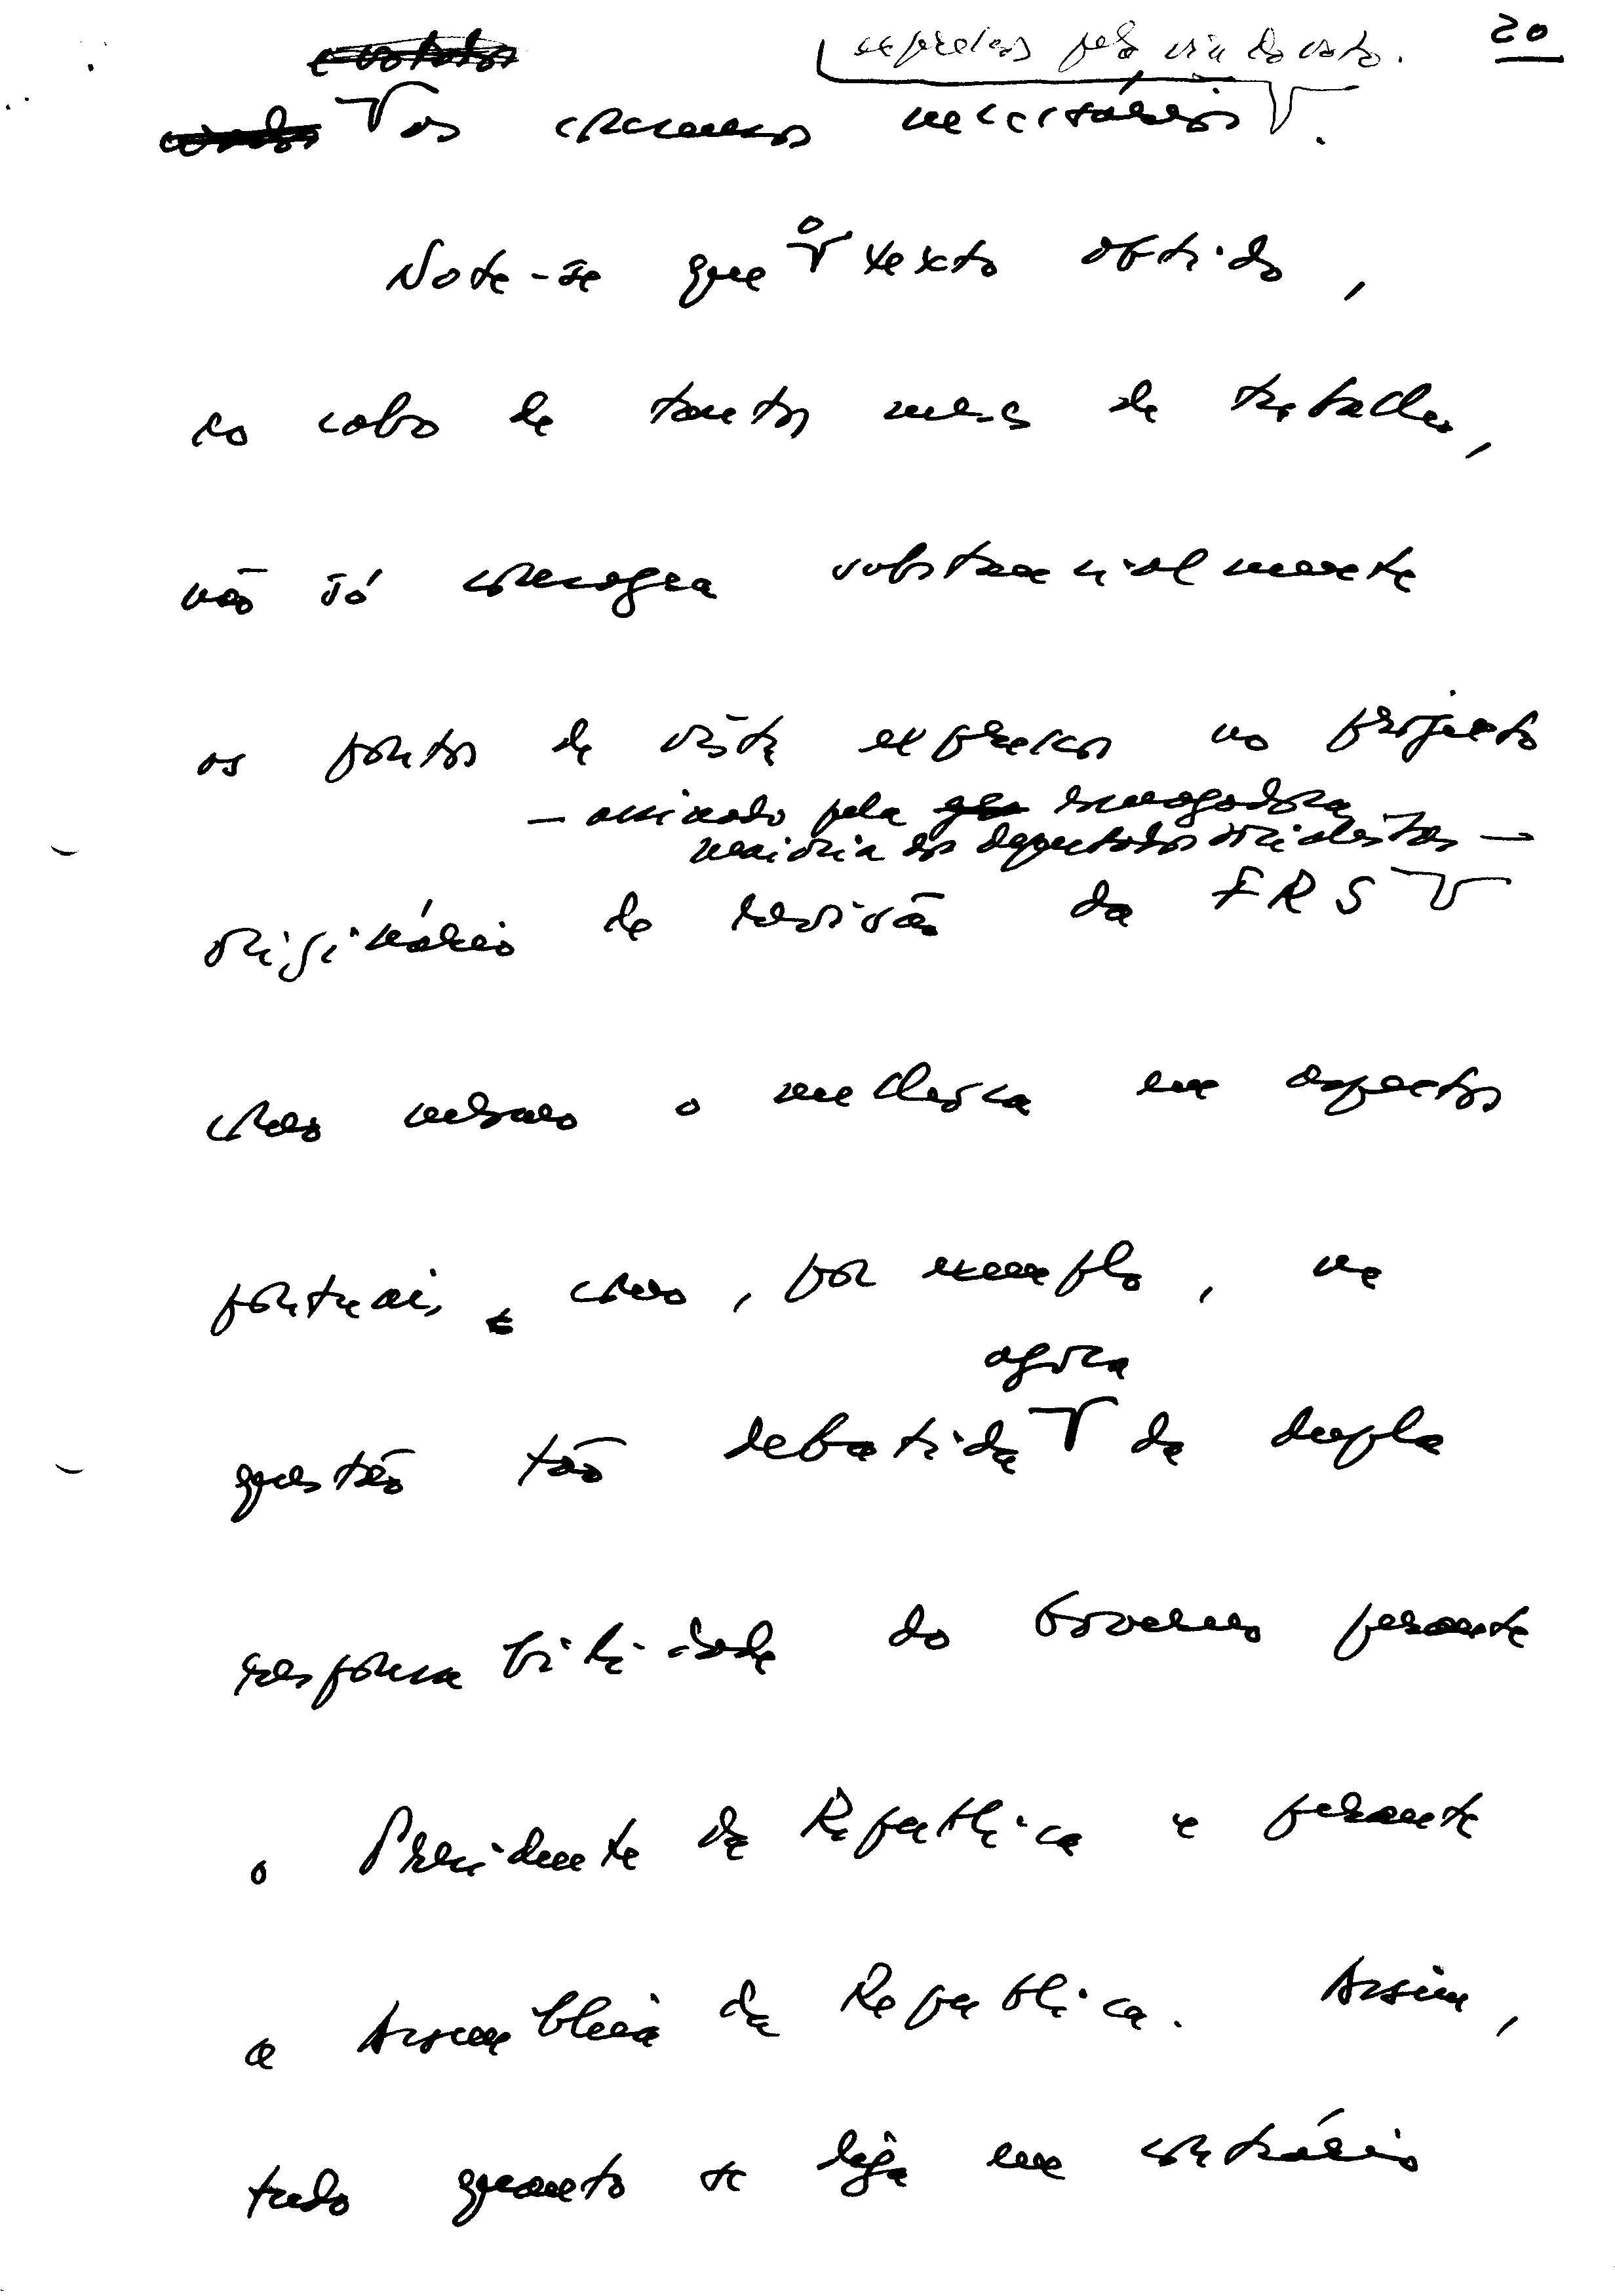 20
expressos pela via do voto.
e votados
os consensos necessários.
Note-se que o texto obtido,
ao cabo de tantos meses de trabalho,
não só consagra substancialmente
os pontos de vista expressos no projecto
— assinado pela esmagadora
maioria dos deputados socialistas —
originário de revisão da FRS
como mesmo o melhora em aspectos
pontuais, como, por exemplo, na
agora
questão tão debatida da dupla
responsabilidade do Governo perante
o Presidente da República e perante
a Assembleia da República. Assim,
tudo quanto se diga em contrário